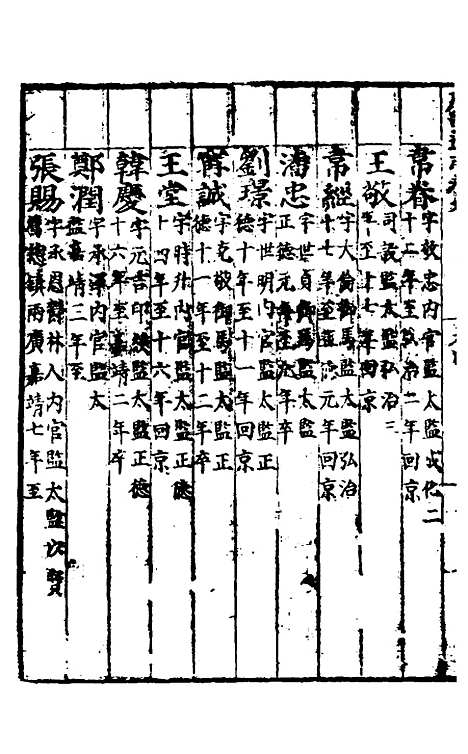 常春字敬忠内官監太監成化二
十二年至弘治二年回京
王敬司設監太監弘治三
年至十七年回京
常經字大倫御馬太監弘治
十七年至正德元年回京
潘忠字世貞御馬監太監
正德元年至 年卒
劉璟字世明内官監太監正
德十年至十一年回京
甯誠字克敬御馬監太監正
德十一年至十二年卒
王堂字時升内官監太監正德
十四年至十六年回京
韓慶字元吉印綬監太監正德
十六年至嘉靖二年卒
鄭潤字承澤内官監太
監嘉靖三年至
張賜字承恩 林人内官監太監以賢
舊總鎮兩廣嘉靖七年至